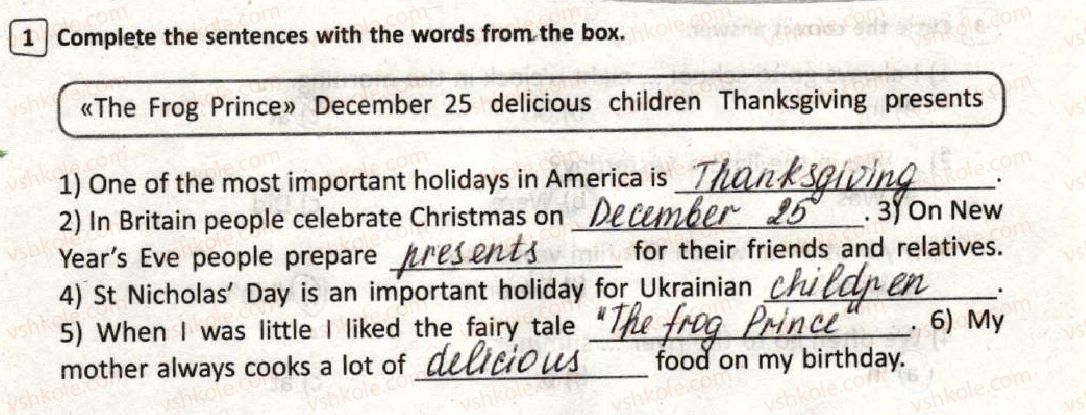 1 Complete the sentences with the words from the box.
«The Frog Prince» December 25 delicious children Thanksgiving presents
1) One of the most important holidays in America is Thanksgiving.
2) In Britain people celebrate Christmas on December 25. 3) On New
Year's Eve people prepare presents for their friends and relatives.
4) St Nicholas' Day is an important holiday for Ukrainian children.
5) When I was little I liked the fairy tale "The frog Prince". 6) My
mother always cooks a lot of delicious food on my birthday.